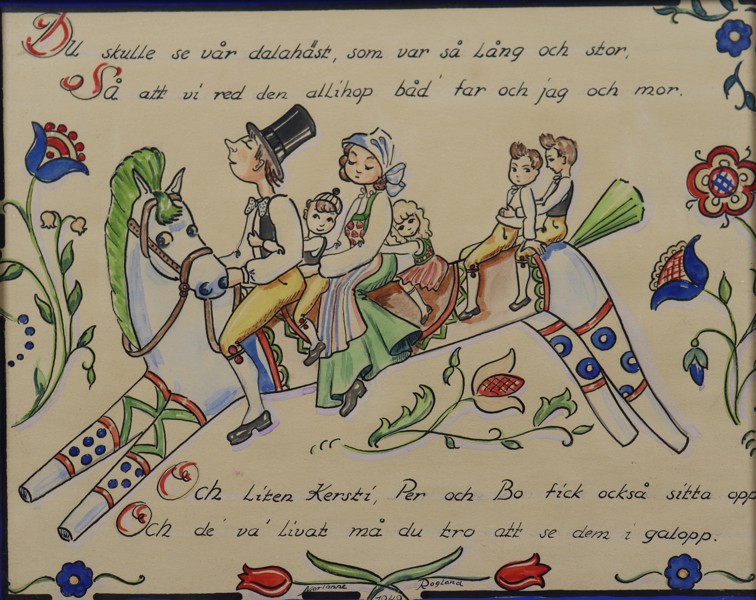 Du skulle se vår dalahäst, som var så lång och stor,
Så att vi red den allihop båd' far och jag och mor.
Och liten Kersti, Per och Bo fick också sitta opp
Och de' va' livat må du tro att se dem i galopp.
Marianne Rogland
1949